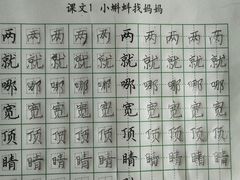 课文1 小蝌蚪找妈妈
两 两 两 两 两 两 两 两
就 就 就 就 就 就 就 就
哪 哪 哪 哪 哪 哪 哪 哪
宽 宽 宽 宽 宽 宽 宽 宽
顶 顶 顶 顶 顶 顶 顶 顶
睛 睛 睛 睛 睛 睛 睛 睛